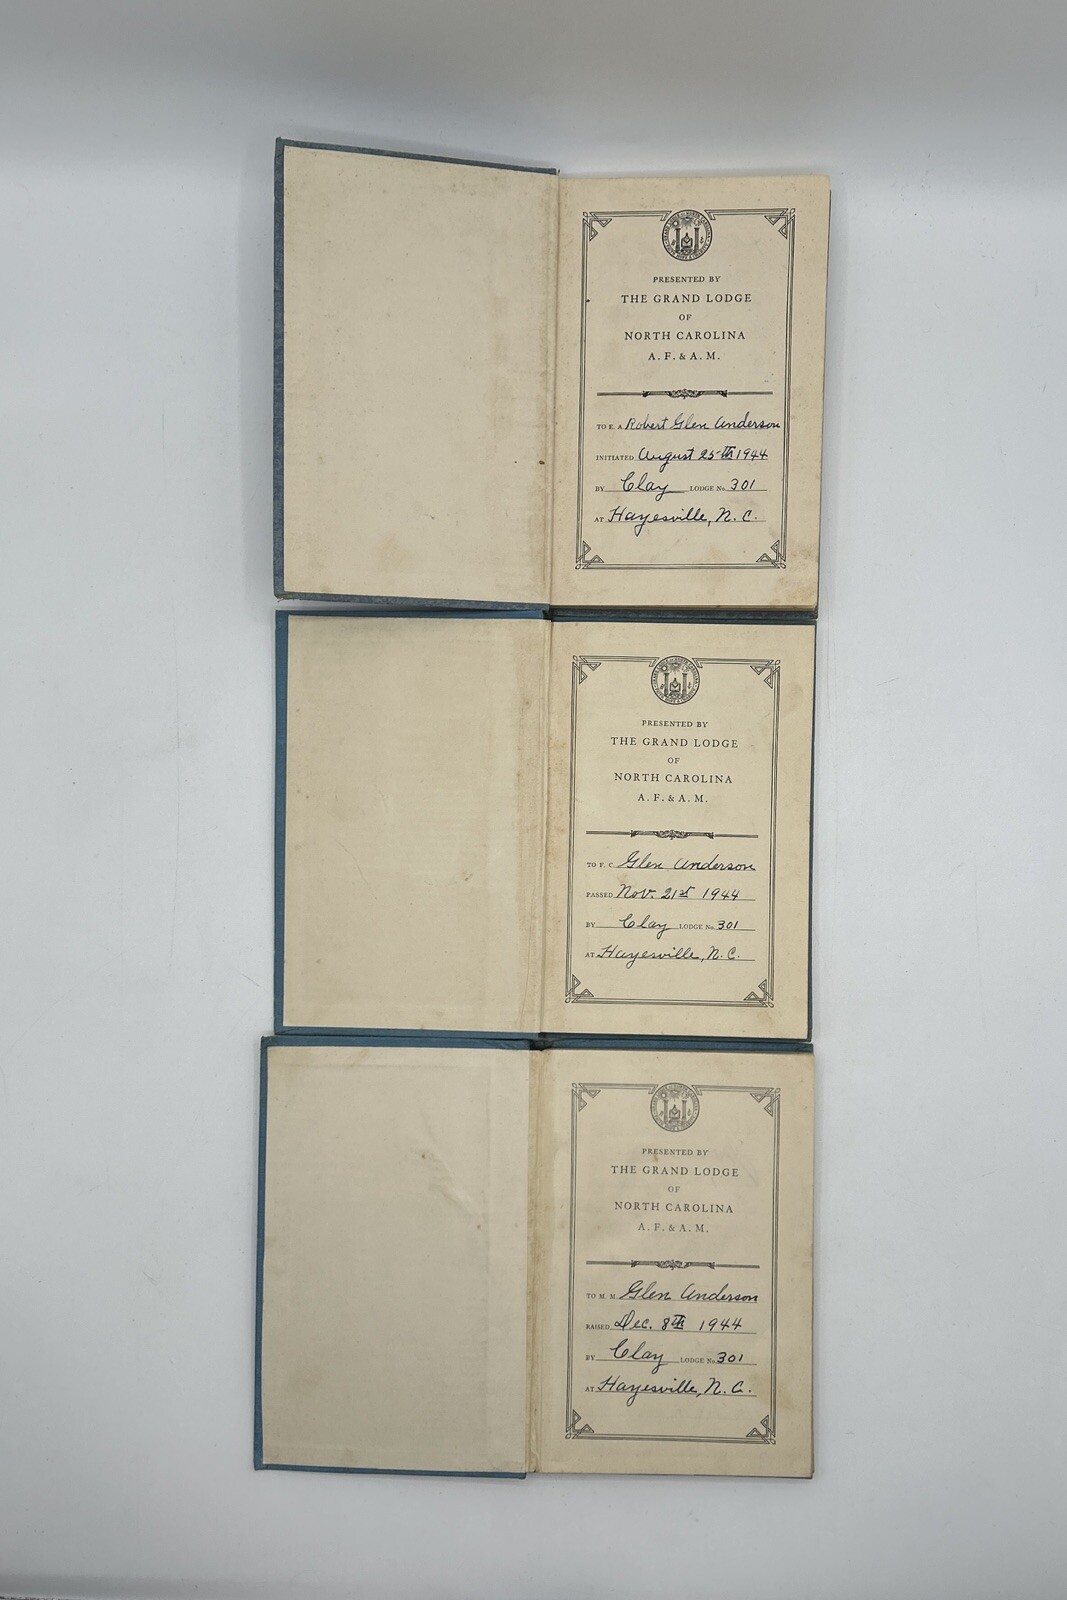 PRESENTED BY
THE GRAND LODGE
OF
NORTH CAROLINA
A. F. & A. M.
TO E. A. Robert Glen Anderson
INITIATED August 25th 1944
BY Clay LODGE No. 301
AT Hayesville, N. C.
PRESENTED BY
THE GRAND LODGE
OF
NORTH CAROLINA
A. F. & A. M.
TO F. C. Glen Anderson
PASSED Nov. 21st 1944
BY Clay LODGE No. 301
AT Hayesville, N. C.
PRESENTED BY
THE GRAND LODGE
OF
NORTH CAROLINA
A. F. & A. M.
TO M. M. Glen Anderson
RAISED Dec. 8th 1944
BY Clay LODGE No. 301
AT Hayesville, N. C.